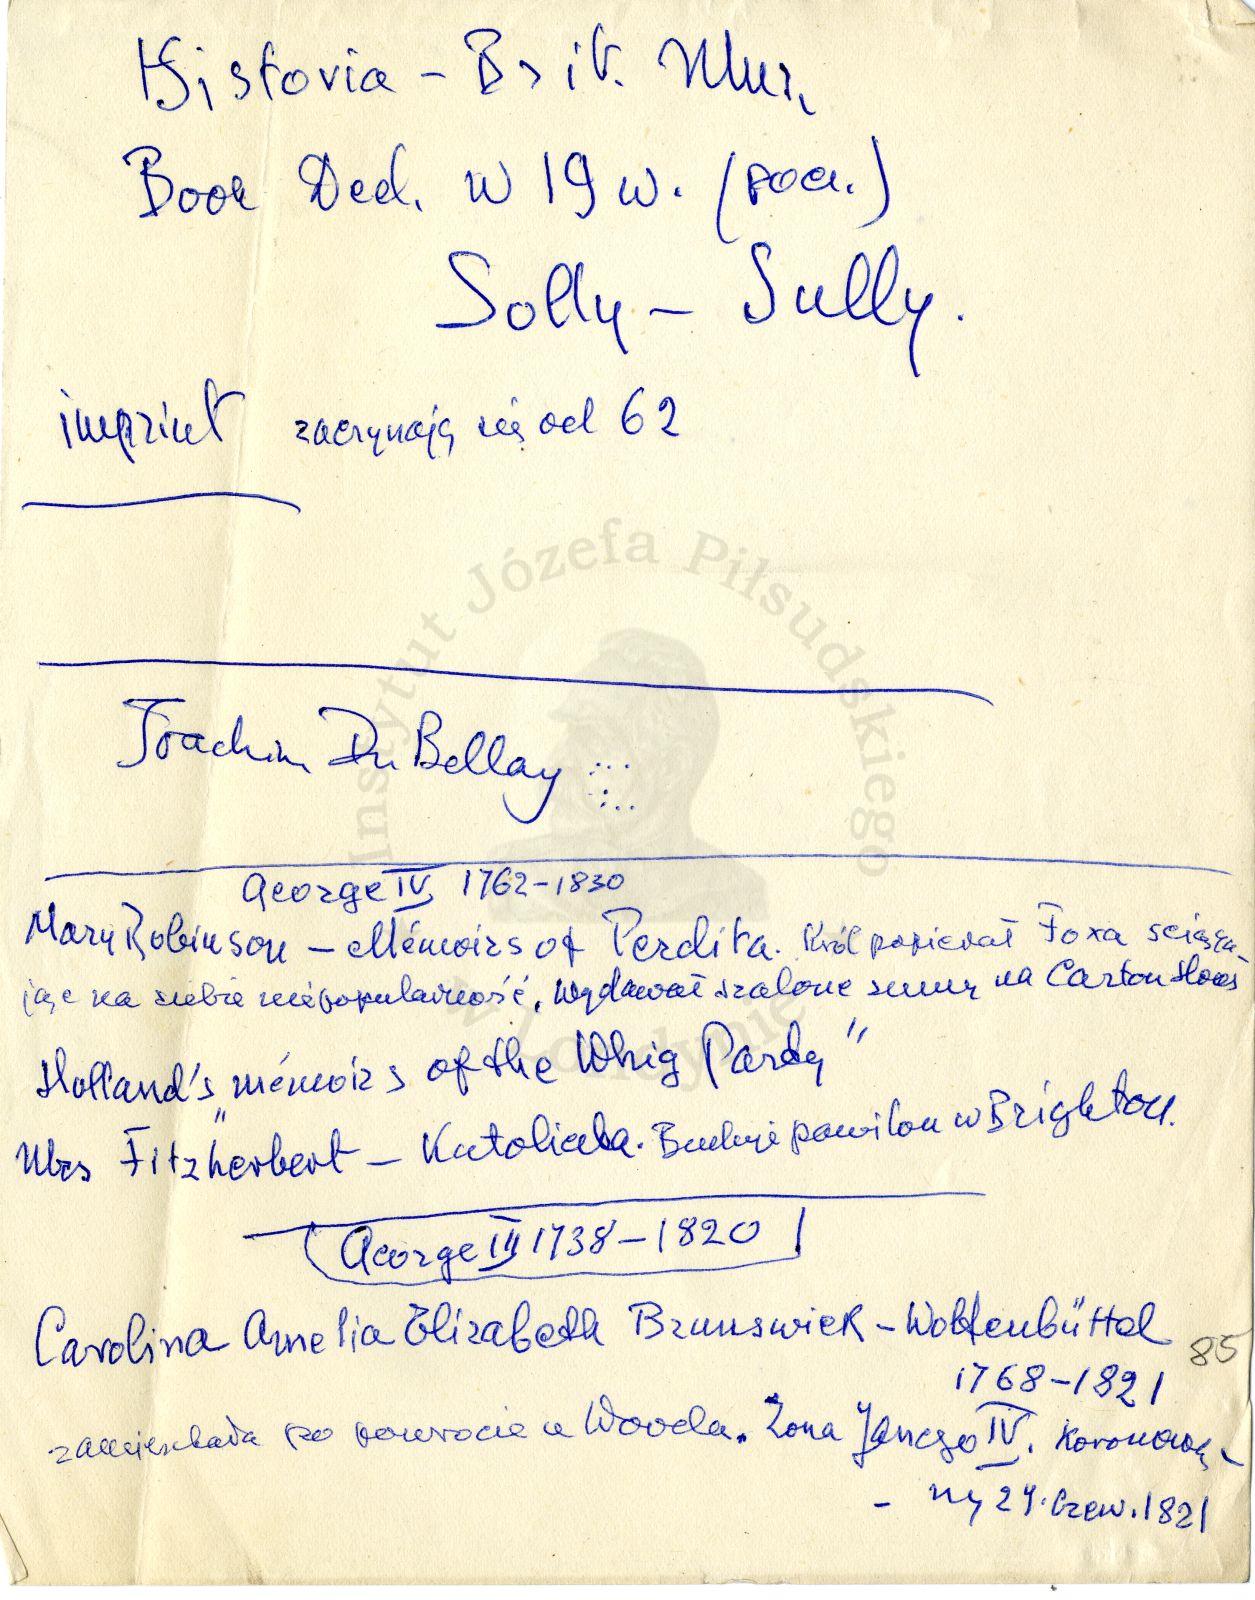 Historia – Brit. Mus.
Book Ded. w 19 w. (pocz.)
Solly – Sully.
imprint zaczynają się od 62
Instytut Józefa Piłsudskiego
w Londynie
Joachim Du Bellay
George IV 1762–1830
Mary Robinson – Mémoirs of Perdita. Król popierał Foxa ściąga-
jąc na siebie niepopularność. Wydawał szalone sumy na Carton House
Holland's "mémoirs of the Whig Party"
Mrs Fitzherbert – Katoliczka. Buduje pawilon w Brighton.
George III 1738–1820
Carolina Amelia Elizabeth Brunswick – Wolfenbüttel
85
1768–1821
zamieszkała po powrocie u Wooda. Żona IV. Koronowa-
– ny 29. Czew. 1821